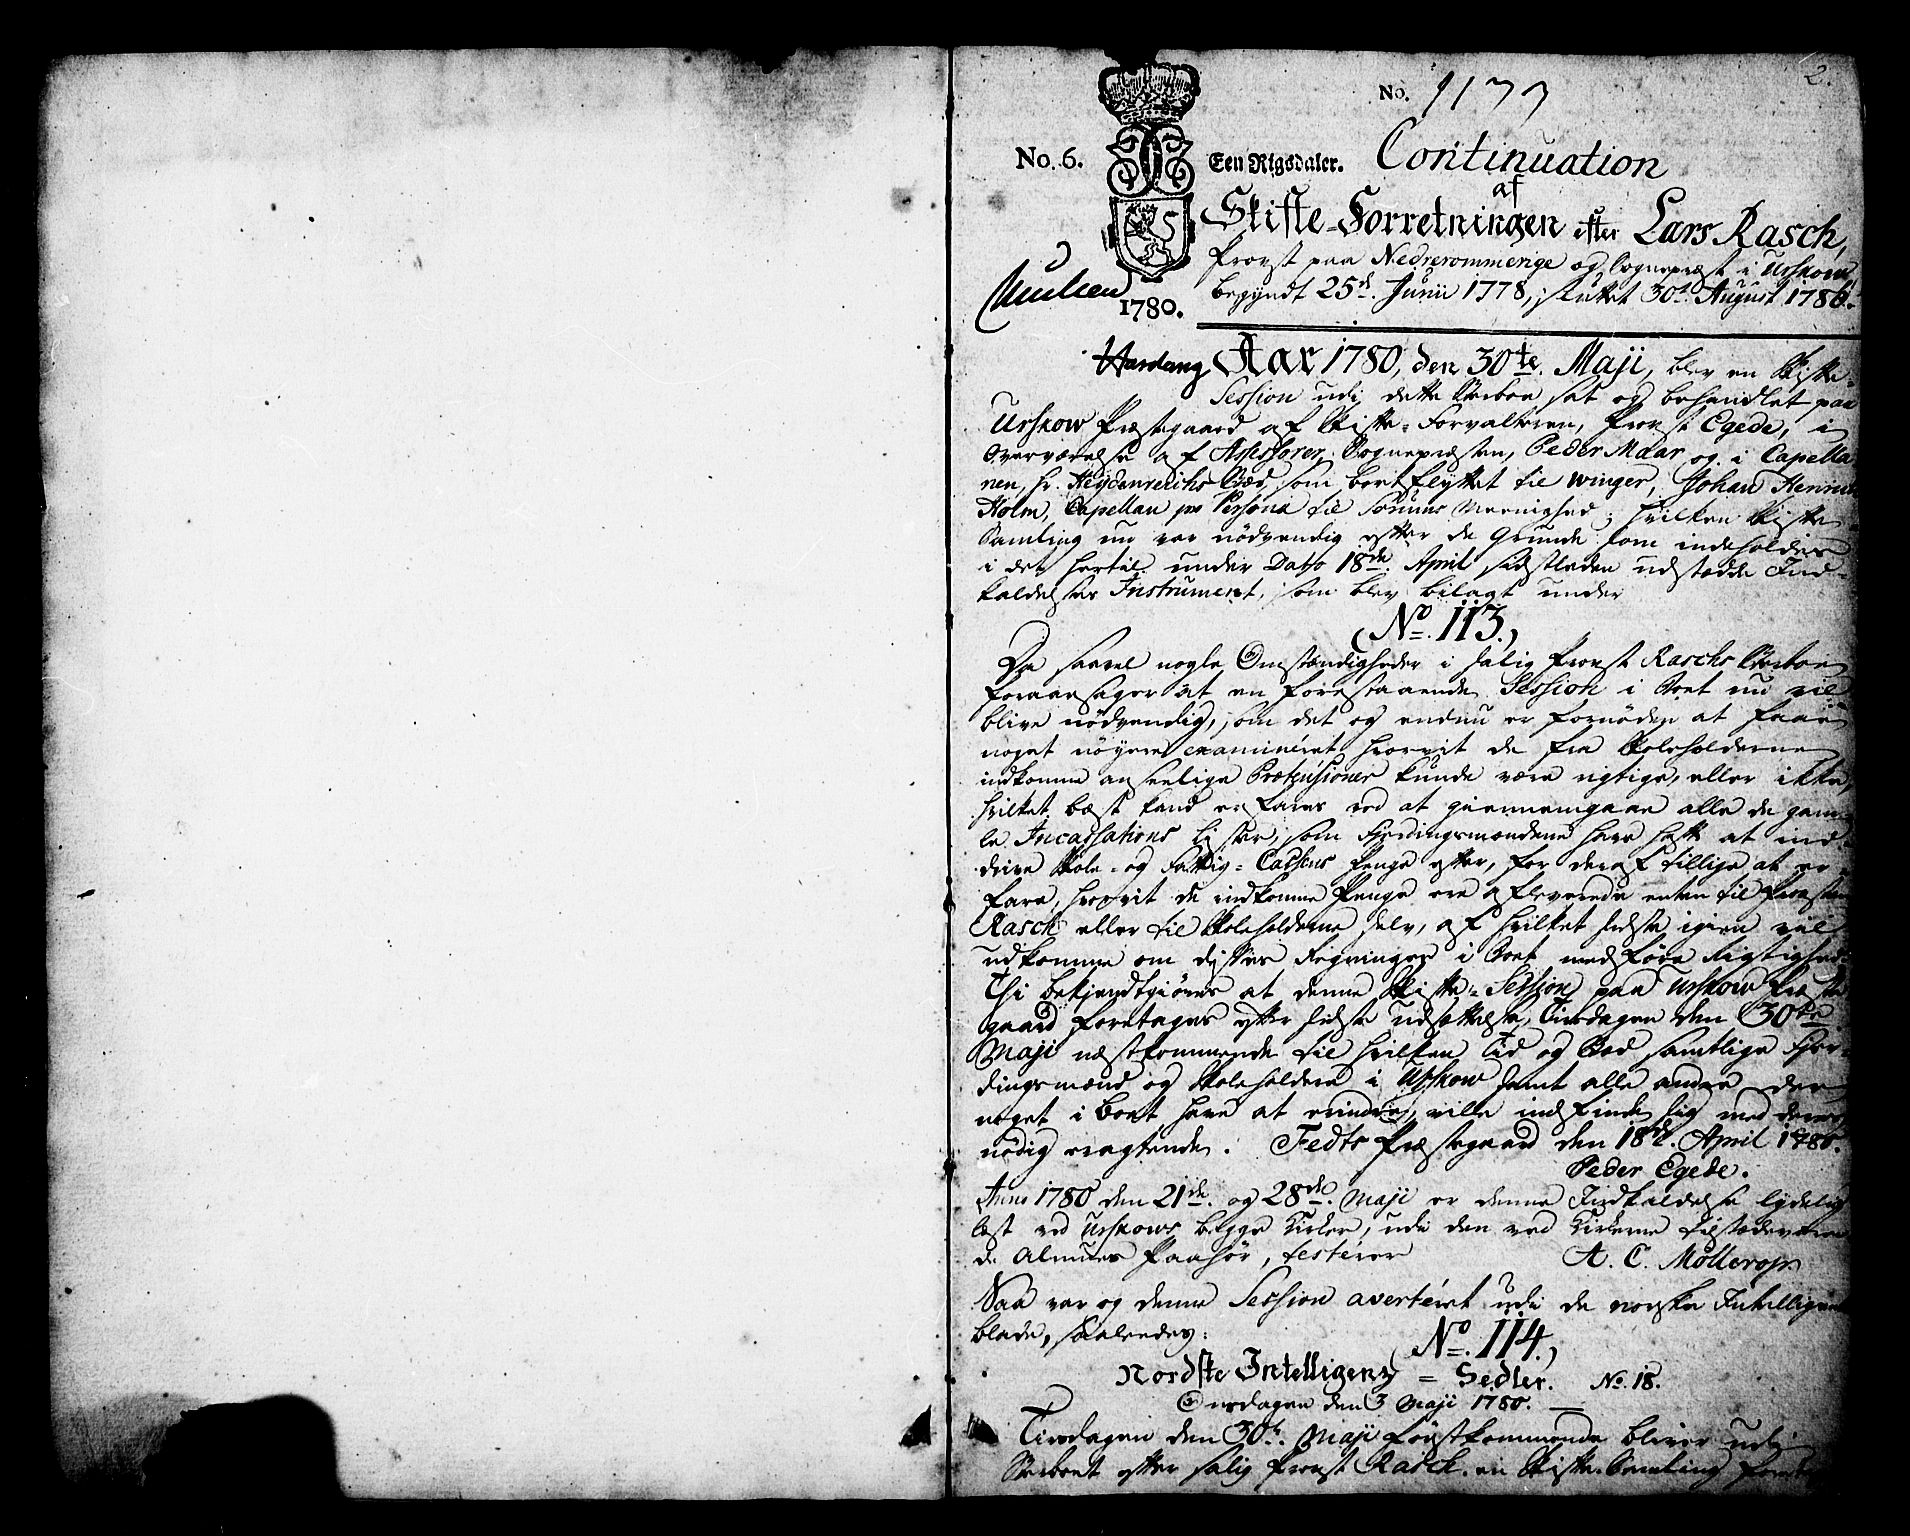 2.
No. 1133
No. 6. Een Rigsdaler. Continuation
af
Skifte-Forretningen efter Lars Rasch,
Provst paa Nedreromerige og Sognepræst i Urskow
begyndt 25de Junii 1778, sluttet 30te August 1786.
1780.
Aar 1780, den 30te Maji, blev en Skifte-
Session udi dette Sterboe sat og behandlet paa
Urskow Præstegaard af Skifte-Forvalteren, Provst Egede, i
Overværelse af Assessorer, Sognepræsten, Peder Maar og i Capella-
nen, Hr. Heydenreichs Stæd, som bortflyttet til Winger, Johan Henrich
Holm, Capellan pro Persona til Sørums Meenighed; hvilken Skifte
Samling nu var nödvendig efter de Grunde som indeholdes
i det hertil under Dato 18de April sidstleden udstædde Ind-
kaldelses Instrument, som blev bilagt under
(No. 113.)
Da saavel nogle Omstændigheder i salig Provst Raschs Sterboe
foraarsager at en forestaaende Session i Boet nu vil
blive nödvendig, som det og endnu er fornöden at faae
noget nöyere examineret hvorvit de fra Skoleholderne
indkomne anseelige Prætensioner kunde være rigtige, eller ikke,
hvilket best kand erfares ved at giennemgaae alle de gam-
le Incassations Lister, som Fierdingsmændene have haft at ind-
drive Skole- og Fattig-Cassens Penge efter, for deraf tillige at er-
fare, hvorvit de indkomne Penge ere afleverede enten til Provsten
Rasch eller til Skoleholderne selv, af hvilket sidste igien vil
udkomme om disses Regninger i Boet medföre Rigtighed.
Thi bekjendtgiöres at denne Skifte-Session paa Urskow Præste
gaard foretages efter sidste Udsættelse, Tirsdagen den 30te
Maji næstkommende til hvilken Tid og Sted samtlige Fier-
dingsmænd og Skoleholdere i Urskow samt alle andre der
noget i Boet have at erindre, ville indfinde sig med deres
nödig eragtende. Fedts Præstegaard den 18de April 1780.
Peder Egede.
Anno 1780 den 21de og 28de Maji er denne Indkaldelse lydelig
læst ved Urskows begge Kirker, udi den ved Kirkerne tilstædeværen
de Almues Paahör, testerer A. C. Möllerop.
Saa var og denne Session averteret udi de norske Intelligentz
blade, saaledes:
(No. 114.)
Nordske Intelligentz-Sedler. No. 18.
Onsdagen den 3 Maji 1780.
Tirsdagen den 30te Maji förstkommende bliver udi
Sterboet efter salig Provst Rasch en Skifte-Samling foreta